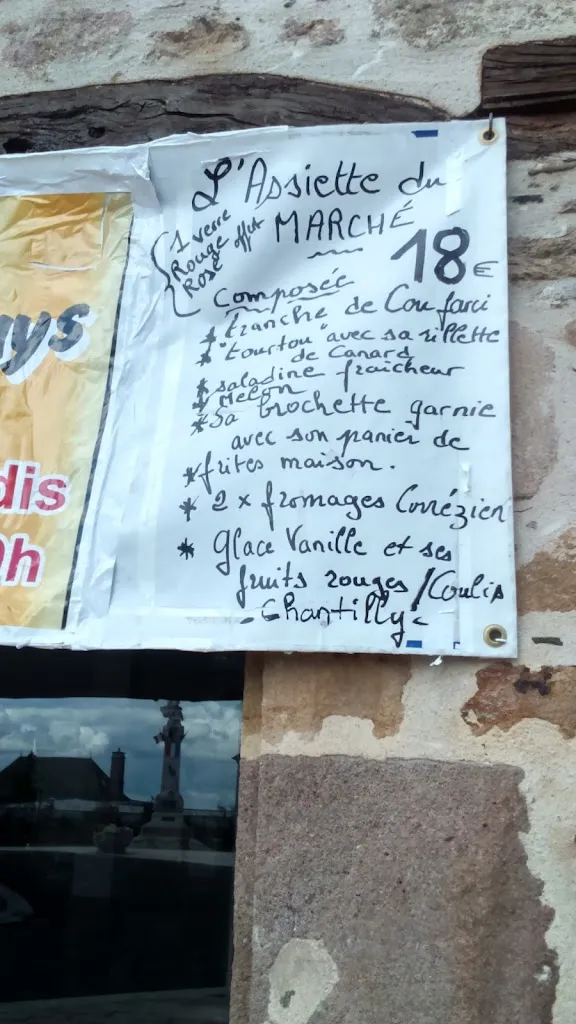 L'Assiette du
MARCHÉ
1 verre
Rouge offert
Rosé
18€
Composée
* tranche de Cou farci
* "tourtou" avec sa rillette
de Canard
* saladine fraicheur
* Melon
* Sa brochette garnie
avec son panier de
* frites maison.
* 2 x fromages Corrézien
* Glace Vanille et ses
fruits rouges / Coulis
- Chantilly -
ays
dis
0h